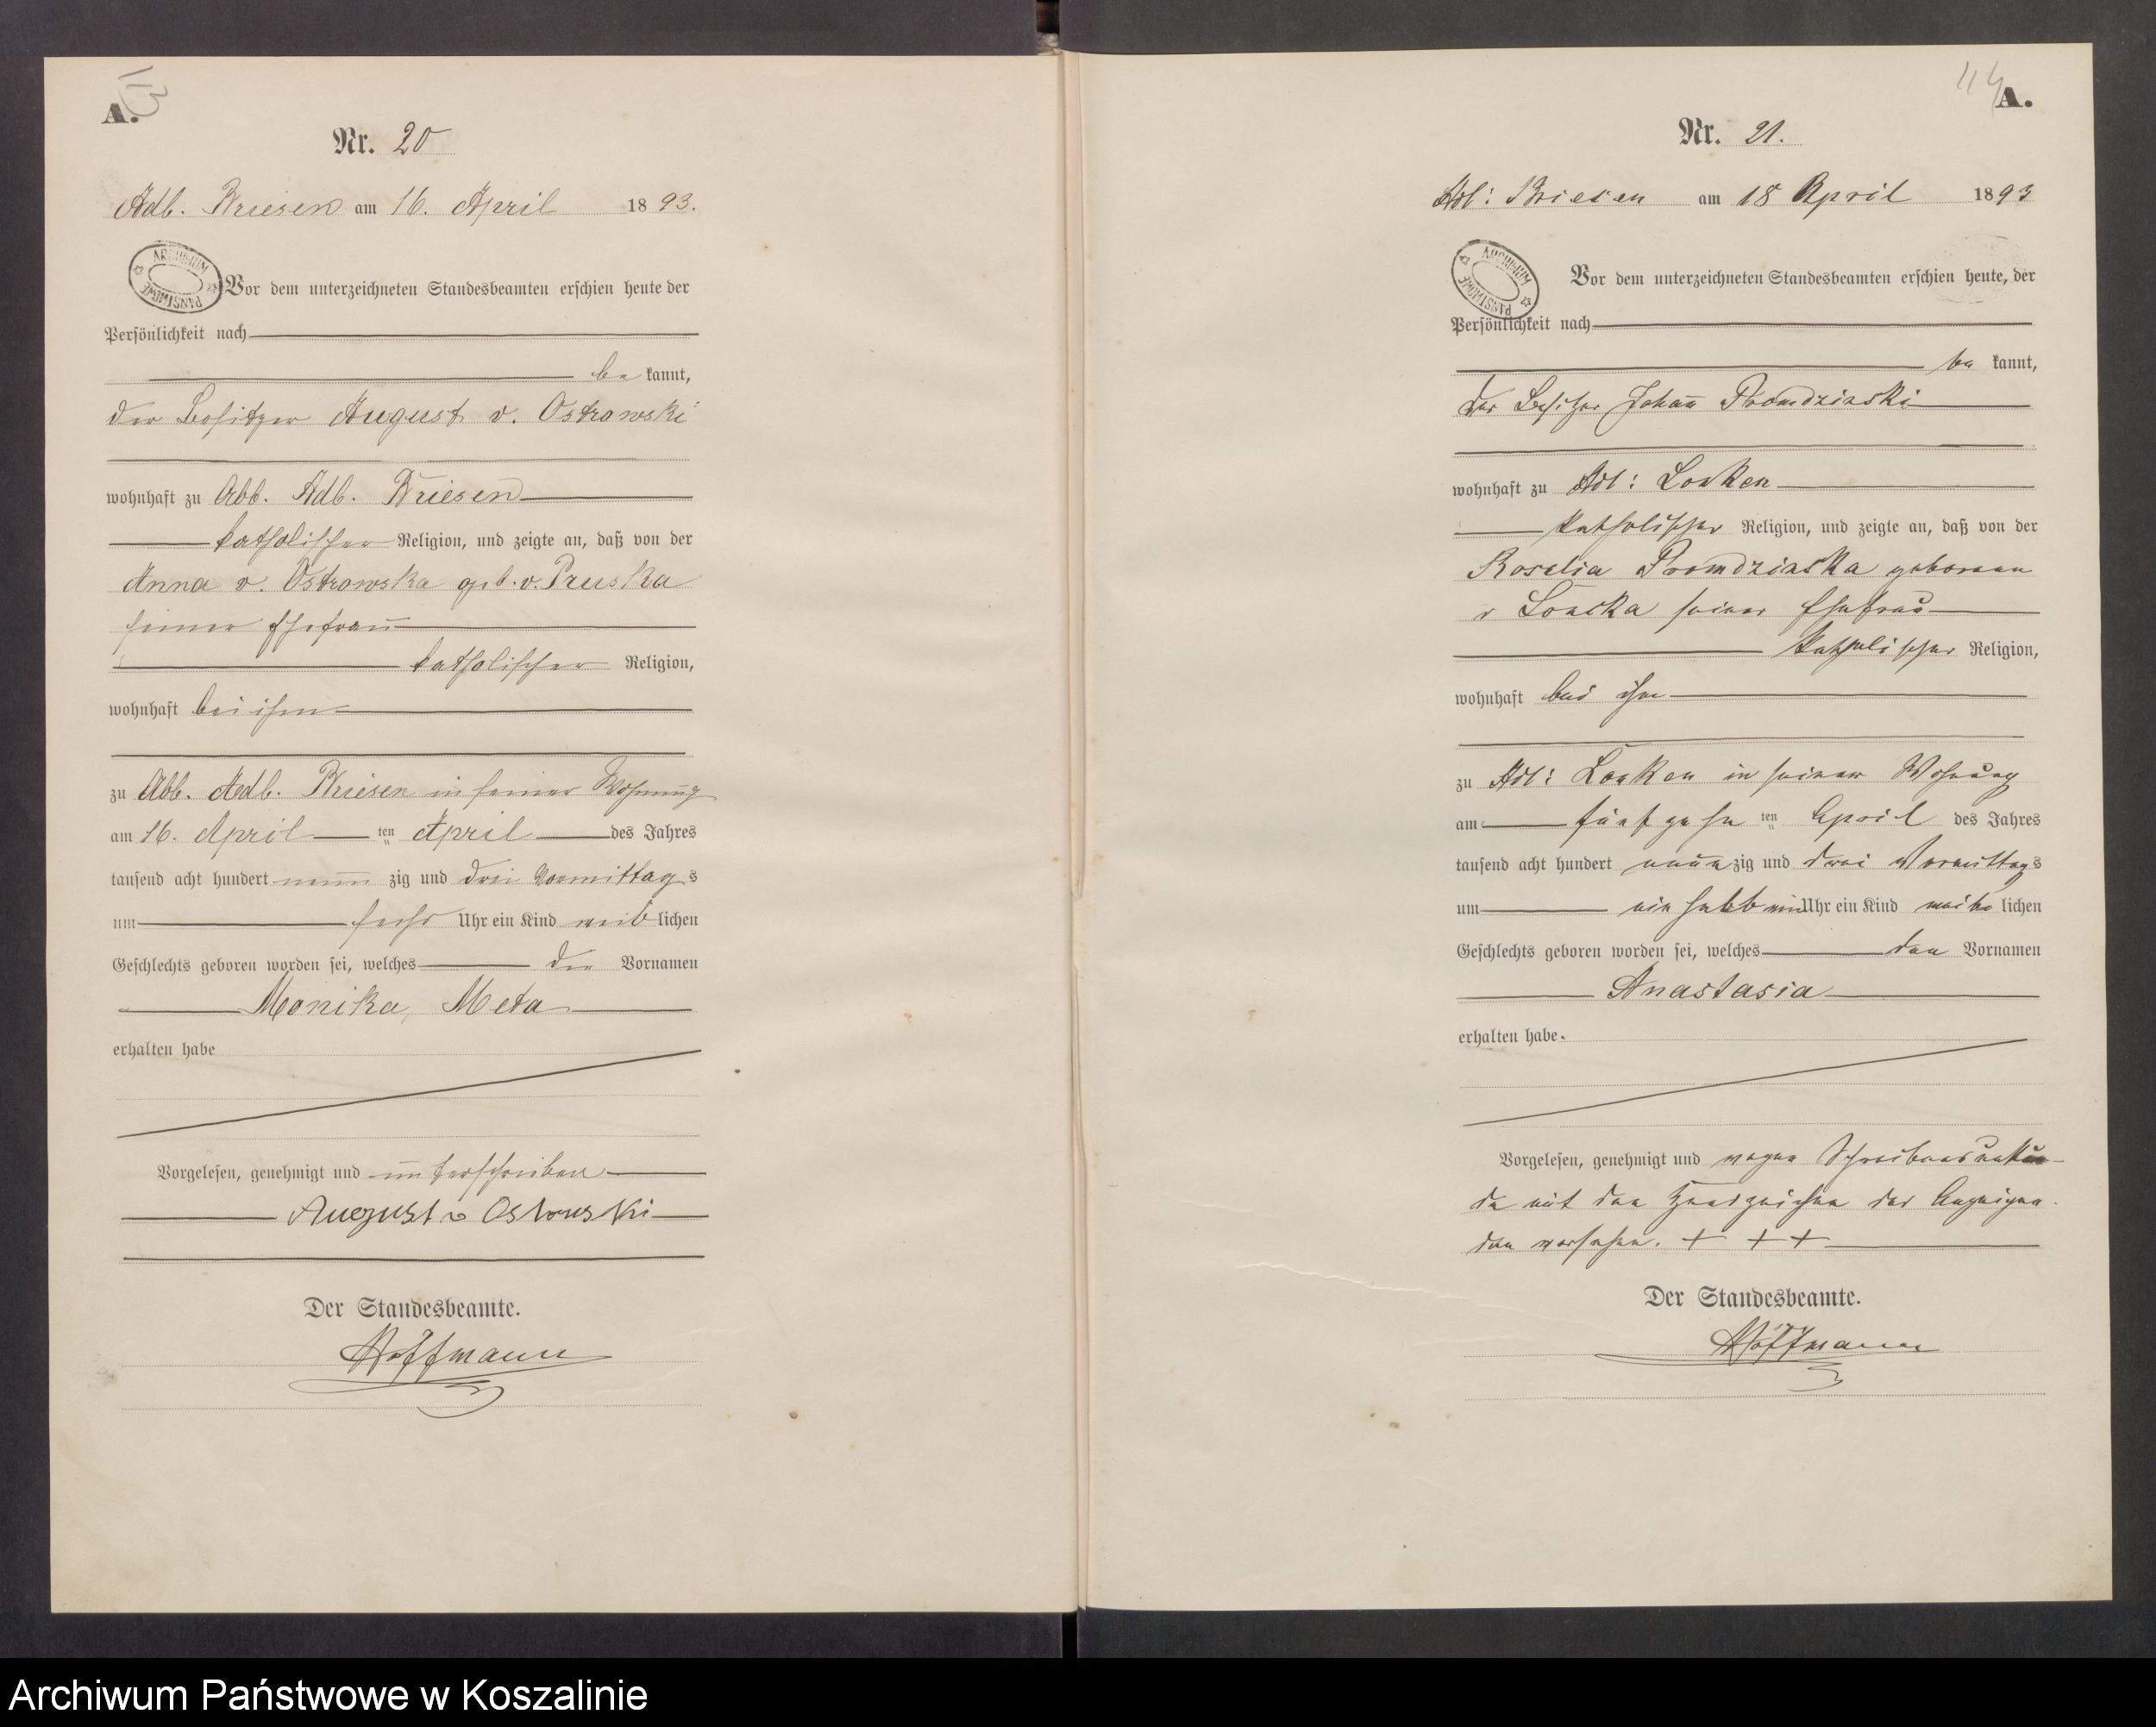 13
A.
Nr. 20
Adl. Briesen am 16. April 1893.
ARCHIWUM PAŃSTWOWE
Vor dem unterzeichneten Standesbeamten erschien heute der
Persönlichkeit nach
be kannt,
der Besitzer August v. Ostrowski
wohnhaft zu Abb. Adl. Briesen
katholischer Religion, und zeigte an, daß von der
Anna v. Ostrowska geb. v. Pruska
seiner Ehefrau
katholischer Religion,
wohnhaft bei ihm
zu Abb. Adl. Briesen in seiner Wohnung
am 16. April ten April des Jahres
tausend acht hundert neun zig und drei Vormittags
um sechs Uhr ein Kind weib lichen
Geschlechts geboren worden sei, welches die Vornamen
Monika, Meta
erhalten habe
Vorgelesen, genehmigt und unterschrieben
August v Ostrowski
Der Standesbeamte.
Hoffmann
44
A.
Nr. 21.
Adl: Briesen am 18 April 1893
ARCHIWUM PAŃSTWOWE
Vor dem unterzeichneten Standesbeamten erschien heute, der
Persönlichkeit nach
be kannt,
der Besitzer Johann
wohnhaft zu Adl: Lonken
katholischer Religion, und zeigte an, daß von der
Rosalia geborenen
v Lonska seiner Ehefrau
katholischer Religion,
wohnhaft bei ihm
zu Adl: Lonken in seiner Wohnung
am fünfzehn ten April des Jahres
tausend acht hundert neun zig und drei Vormittags
um ein halb Uhr ein Kind weib lichen
Geschlechts geboren worden sei, welches den Vornamen
Anastasia
erhalten habe.
Vorgelesen, genehmigt und wegen Schreibensunkun-
de mit den Handzeichen des Anzeigen-
den versehen. + + +
Der Standesbeamte.
Hoffmann
Archiwum Państwowe w Koszalinie